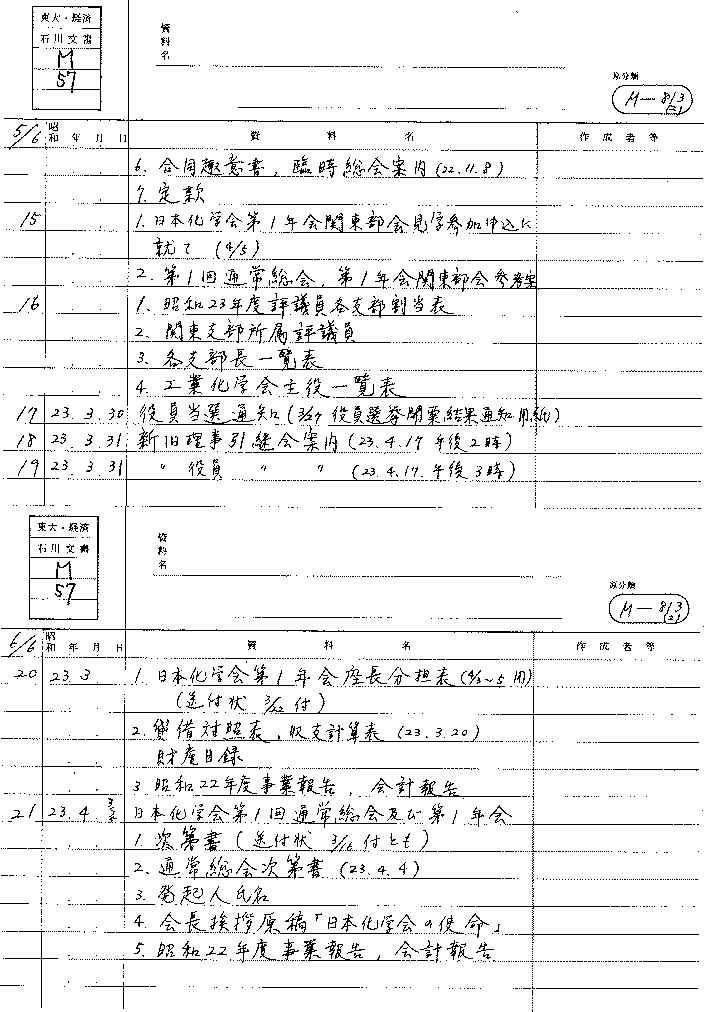 東大・経済
石川文書
M
57
資料名
原分類
M-813
(2)
5/6 昭和 年 月 日 資料名 作成者等
6. 合同趣意書, 臨時総会案内 (22.11.8)
7. 定款
15 1. 日本化学会第1年会関東部会見学参加申込に
就て (4/5)
2. 第1回通常総会, 第1年会関東部会参考案
16 1. 昭和23年度評議員各支部割当表
2. 関東支部所属評議員
3. 各支部長一覧表
4. 工業化学会主役一覧表
17 23.3.30 役員当選通知 (3/27 役員選挙開票結果通知用紙)
18 23.3.31 新旧理事引継会案内 (23.4.17 午後2時)
19 23.3.31 〃 役員 〃 〃 (23.4.17 午後3時)
東大・経済
石川文書
M
57
資料名
原分類
M-813
(2)
6/6 昭和 年 月 日 資料名 作成者等
20 23.3 1. 日本化学会第1年会座長分担表 (4/3~5用)
(送付状 3/22付)
2. 貸借対照表, 収支計算表 (23.3.20)
財産目録
3. 昭和22年度事業報告, 会計報告
21 23.4 日本化学会第1回通常総会及び第1年会
1. 次第書 (送付状 3/16付とも)
2. 通常総会次第書 (23.4.4)
3. 発起人氏名
4. 会長挨拶原稿「日本化学会の使命」
5. 昭和22年度事業報告, 会計報告